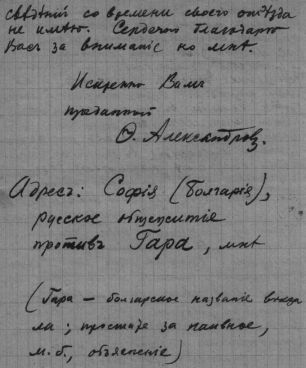 свѣдѣній со времени своего отъѣзда
не имѣю. Сердечно благодарю
Васъ за вниманіе ко мнѣ.
Искренно Вамъ
преданный
Ѳ. Александровъ.
Адресъ: Софія (Болгарія),
русское общежитіе
противъ Гара, мнѣ
(Гара — болгарское названіе вокза
ла; простите за наивное,
м. б., объясненіе)